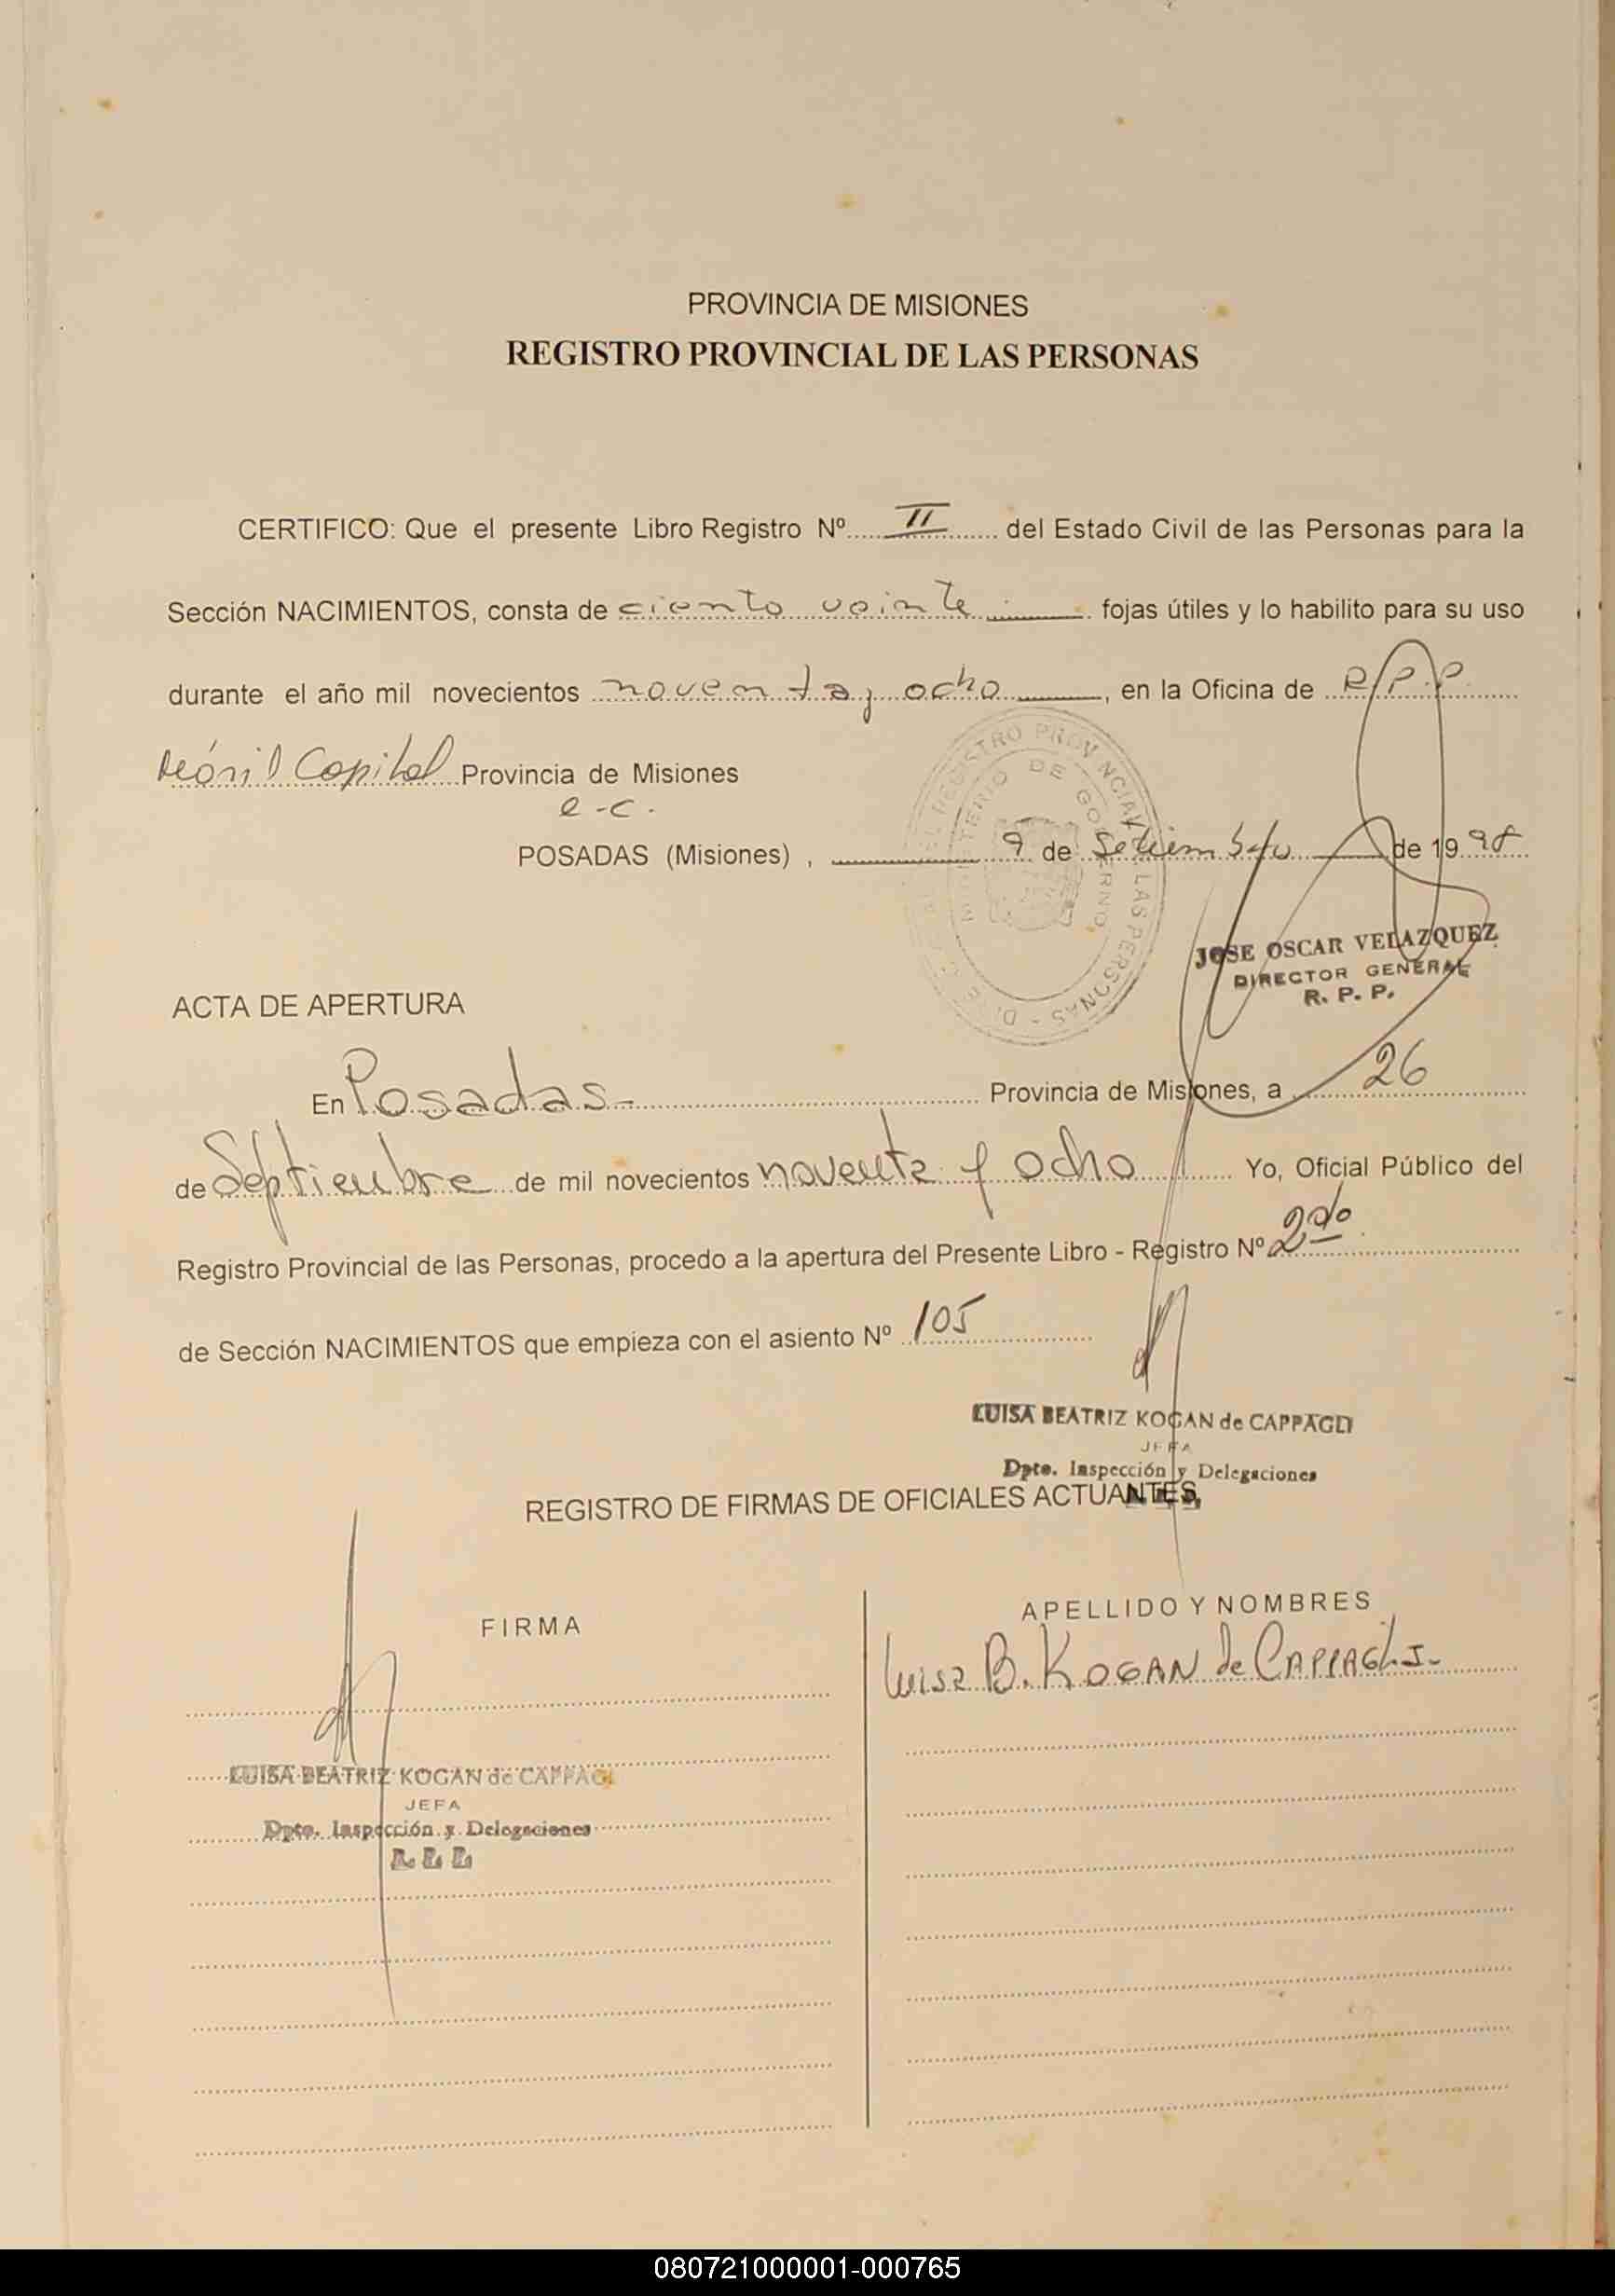 PROVINCIA DE MISIONES
REGISTRO PROVINCIAL DE LAS PERSONAS
CERTIFICO: Que el presente Libro Registro Nº II del Estado Civil de las Personas para la
Sección NACIMIENTOS, consta de ciento veinte fojas útiles y lo habilito para su uso
durante el año mil novecientos noventa y ocho, en la Oficina de R.P.P.
Móvil Capital Provincia de Misiones
e-c.
POSADAS (Misiones), 9 de Setiembre de 1998
REGISTRO PROVINCIAL LAS PERSONAS
MINISTERIO DE GOBIERNO
JOSE OSCAR VELAZQUEZ
DIRECTOR GENERAL
R. P. P.
ACTA DE APERTURA
En Posadas- Provincia de Misiones, a 26
de Septiembre de mil novecientos noventa y ocho Yo, Oficial Público del
Registro Provincial de las Personas, procedo a la apertura del Presente Libro - Registro Nº 2do
de Sección NACIMIENTOS que empieza con el asiento Nº 105
LUISA BEATRIZ KOGAN de CAPPAGLI
JEFA
Dpto. Inspección y Delegaciones
REGISTRO DE FIRMAS DE OFICIALES ACTUANTES
FIRMA
APELLIDO Y NOMBRES
Luisa B. KOGAN de CAPPAGLI-
LUISA BEATRIZ KOGAN de CAPPAGL
JEFA
Dpto. Inspección y Delegaciones
080721000001-000765